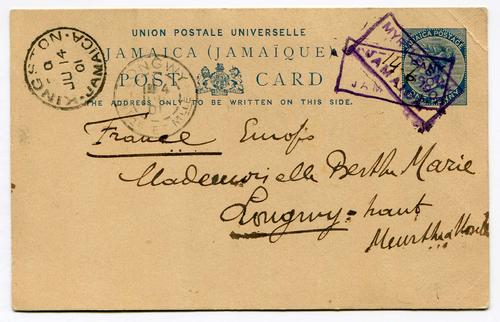 UNION POSTALE UNIVERSELLE
JAMAICA (JAMAÏQUE)
POST CARD
THE ADDRESS ONLY TO BE WRITTEN ON THIS SIDE.
KINGSTON JAMAICA
JU 14
01
LONGWY
JAMAICA POSTAGE
JAMAICA
14
JAM
France Europe
Mademoiselle Berthe Marie
Longwy-haut
Meurthe